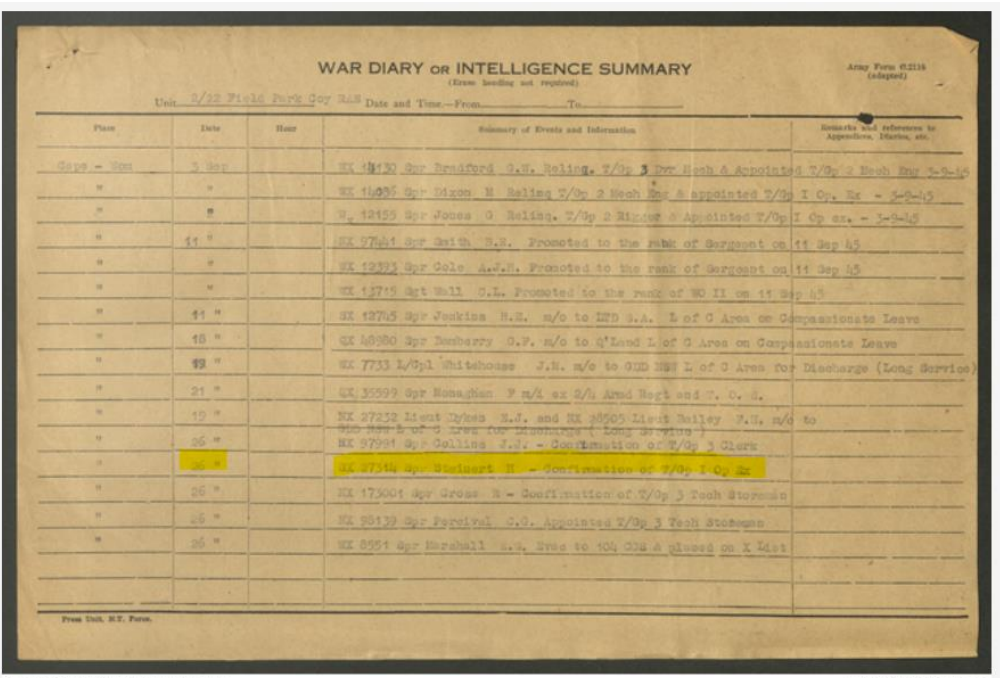 WAR DIARY OR INTELLIGENCE SUMMARY
(Erase heading not required)
Army Form C.2118
(adapted)
Unit 2/22 Field Park Coy RAE Date and Time—From To
Place Date Hour Summary of Events and Information Remarks and references to Appendices, Diaries, etc.
3 Sep Spr Bradford G.W. Relinq. T/Gp 3 Dvr Mech & Appointed T/Gp 2 Mech Eng 3-9-45
" " Spr Dixon M Relinq T/Gp 2 Mech Eng & appointed T/Gp I Op. Ex - 3-9-45
" " 12155 Spr Jones G Relinq. T/Gp 2 Rigger & Appointed T/Gp I Op ex. - 3-9-45
" 11 " NX 97441 Spr Smith Promoted to the rank of Sergeant on 11 Sep 45
" " 12393 Spr Cole A.J.H. Promoted to the rank of Sergeant on 11 Sep 45
" " 13715 Sgt Wall C.L. Promoted to the rank of WO II on 11 Sep 45
" 11 " 12745 Spr Jenkins m/o to S.A. L of C Area on Compassionate Leave
" 18 " QX 48980 Spr m/o to Q'Land L of C Area on Compassionate Leave
" 19 " 7733 L/Cpl Whitehouse J.N. m/o to GDD NSW L of C Area for Discharge (Long Service)
" 21 " 35599 Spr Monaghan F m/i ex 2/4 Armd Regt
" 19 " NX 27232 Lieut Dykes E.J. and Lieut Bailey m/o to
GDD NSW L of C Area for Discharge ( Long Service )
" 26 " NX 97991 Spr Collins J.J. - Confirmation of T/Gp 3 Clerk
" 26 " 27314 Spr Steinert H - Confirmation of T/Gp I Op Ex
" 26 " 173001 Spr Gross - Confirmation of T/Gp 3 Tech Storeman
" 26 " NX 98139 Spr Percival C.G. Appointed T/Gp 3 Tech Storeman
" 26 " 8551 Spr Marshall Evac to 104 CCS & placed on X List
Press Unit, N.T. Force.